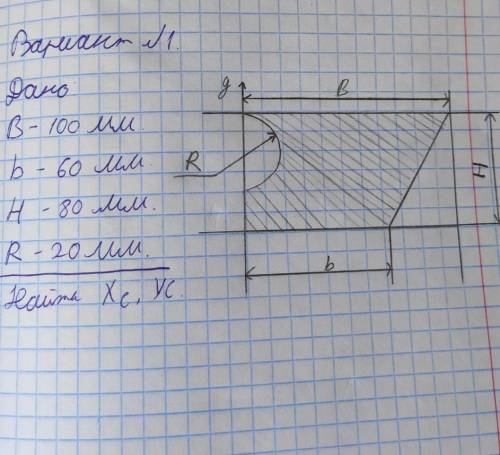 Вариант №1.
Дано
B - 100 мм.
b - 60 мм.
H - 80 мм.
R - 20 мм.
Найти Xc, Yc.
y
B
R
H
b